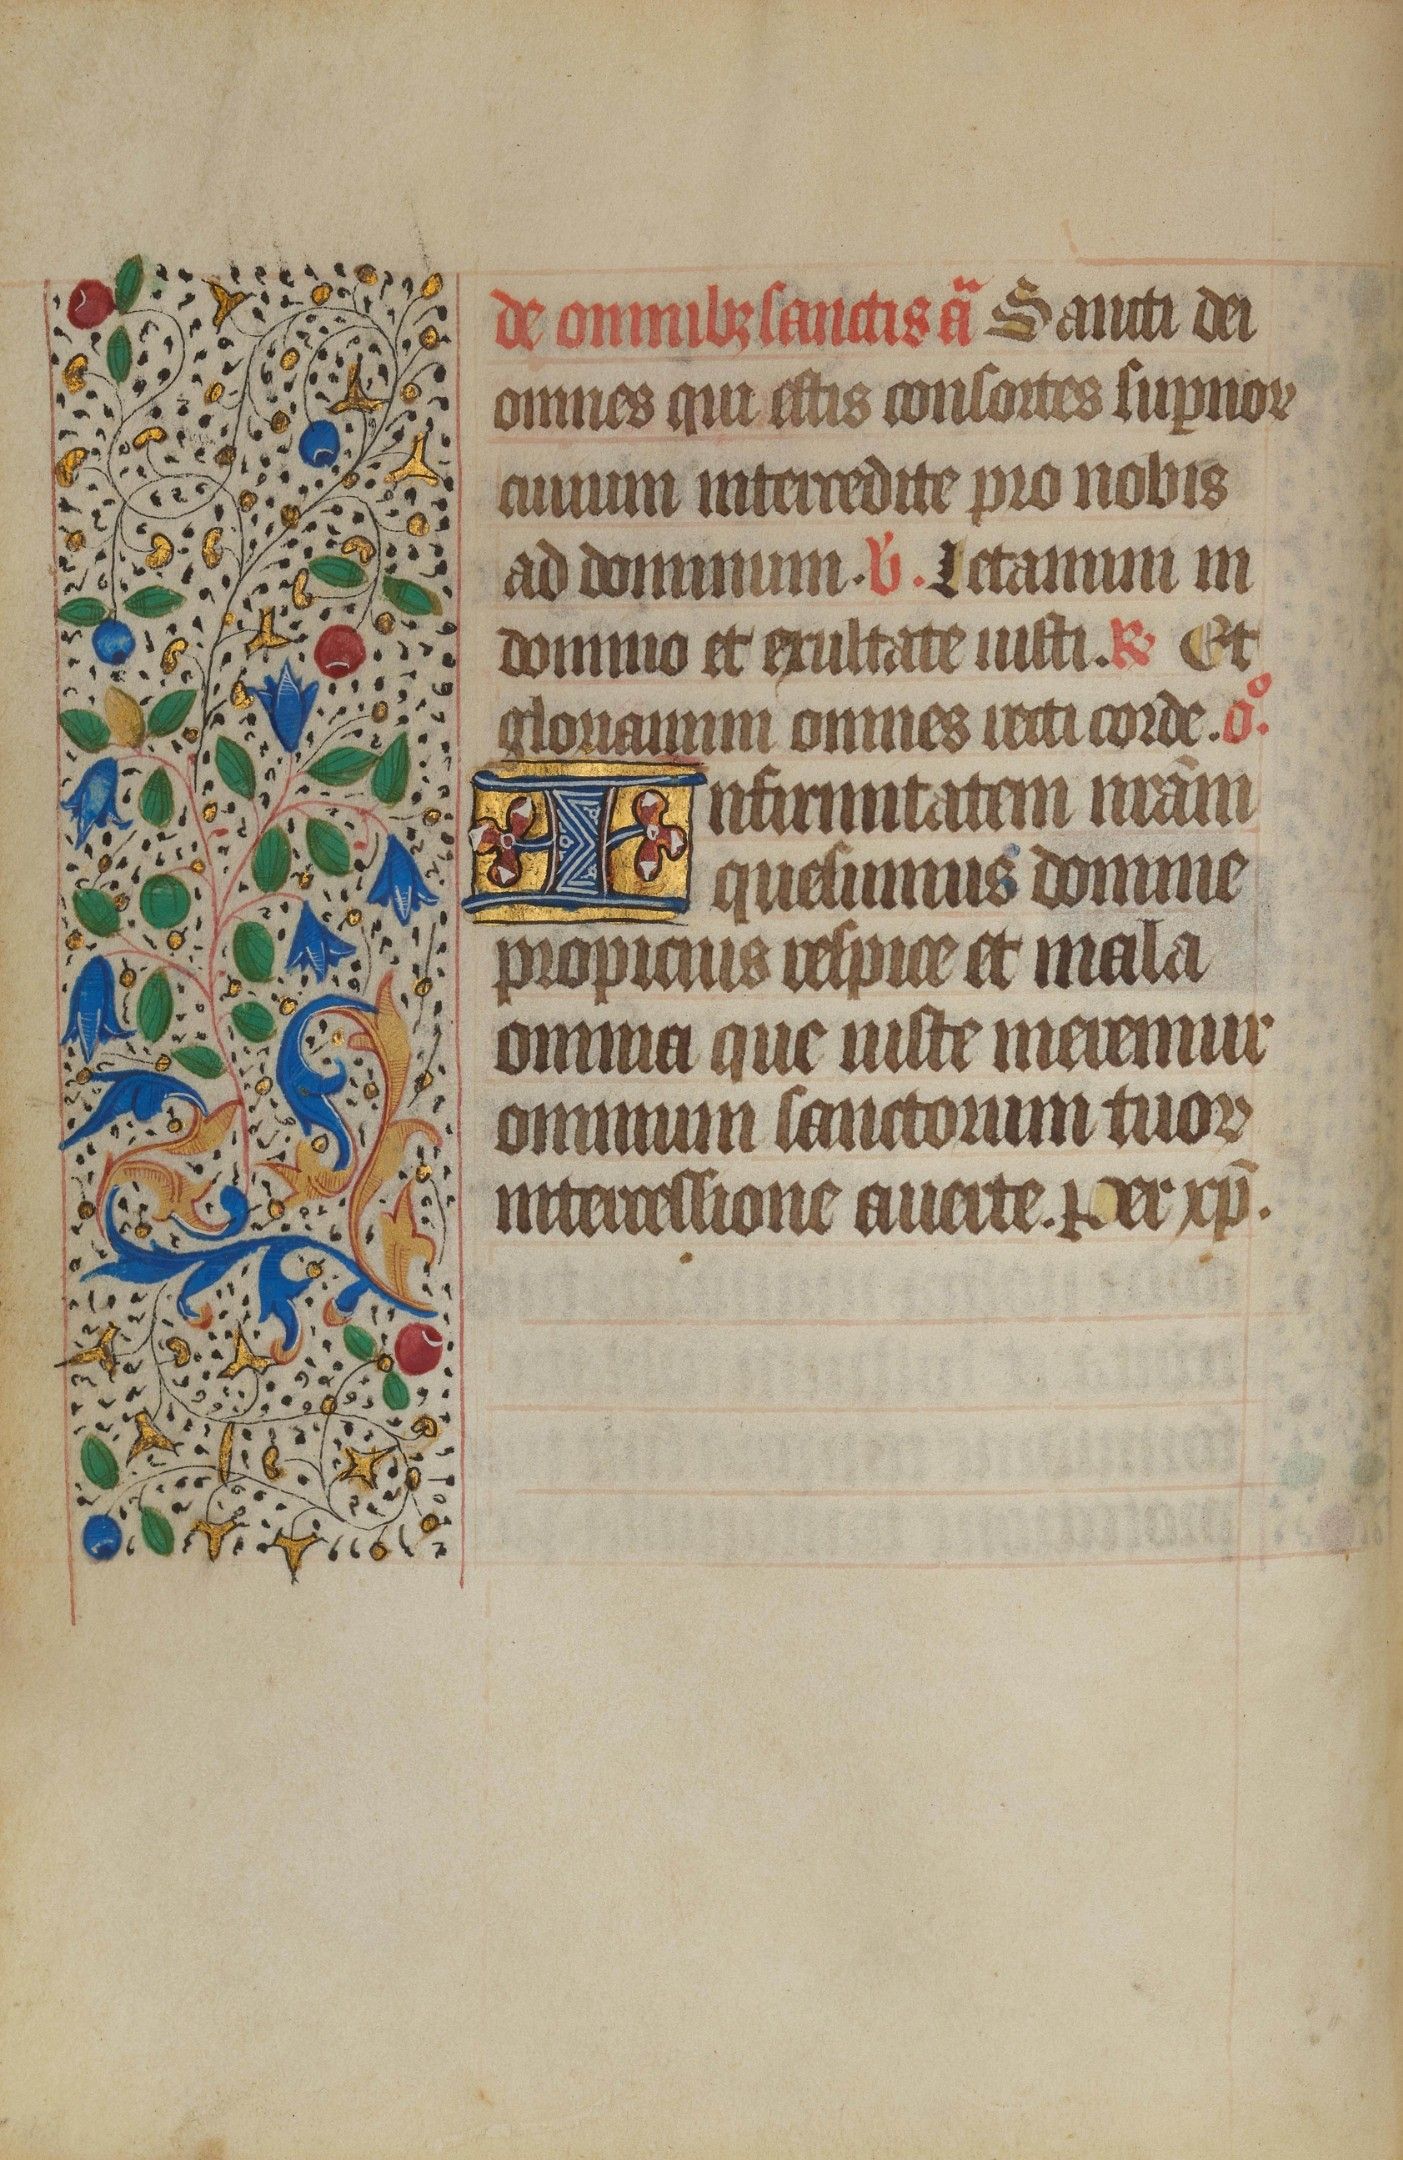 de omnibꝫ sanctis ā Sancti dei
omnes qui estis consortes suꝑnoꝝ
ciuium intercedite pro nobis
ad dominum. ℣. Letamini in
domino et exultate iusti. ℟ Et
gloriamini omnes recti corde. oͦ.
Infirmitatem nr̄am
quesumus domine
propicius respice et mala
omnia que iuste meremur
omnium sanctorum tuoꝝ
intercessione auerte. Per xp̄.